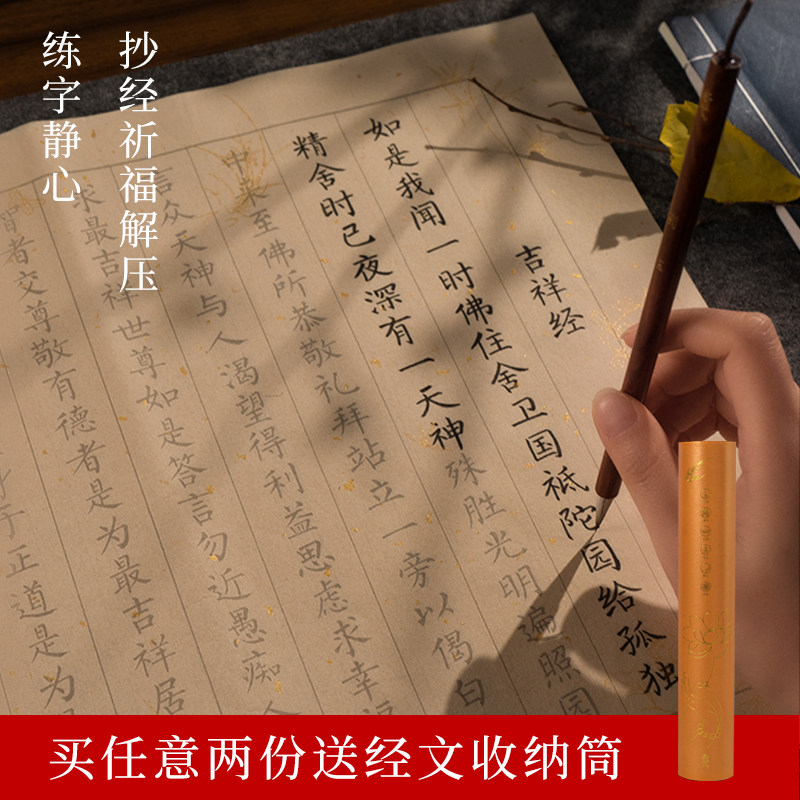 抄经祈福解压
练字静心
吉祥经
如是我闻一时佛住舍卫国祗陀园给孤独
精舍时已夜深有一天神殊胜光明遍照园
中来至佛所恭敬礼拜站立一旁以偈白
言众天神与人渴望得利益思虑求幸福
求最吉祥世尊如是答言勿近愚痴人
智者交尊敬有德者是为最吉祥居
于正道是为
买任意两份送经文收纳筒